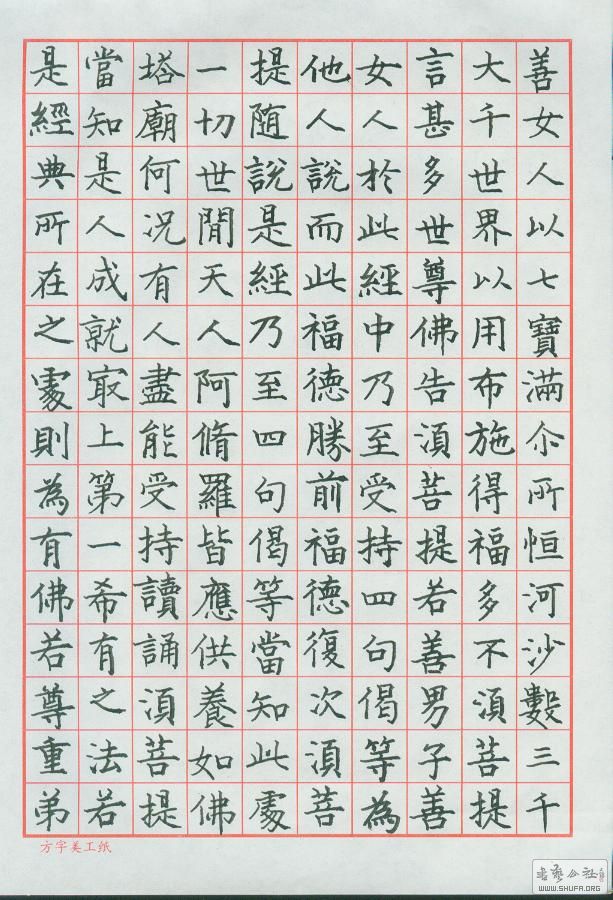 善女人以七寶滿尒所恒河沙數三千
大千世界以用布施得福多不須菩提
言甚多世尊佛告須菩提若善男子善
女人於此經中乃至受持四句偈等為
他人說而此福德勝前福德復次須菩
提随說是經乃至四句偈等當知此處
一切世間天人阿脩羅皆應供養如佛
塔廟何況有人盡能受持讀誦須菩提
當知是人成就冣上第一希有之法若
是經典所在之處則為有佛若尊重弟
方字美工纸
书艺公社
WWW.SHUFA.ORG